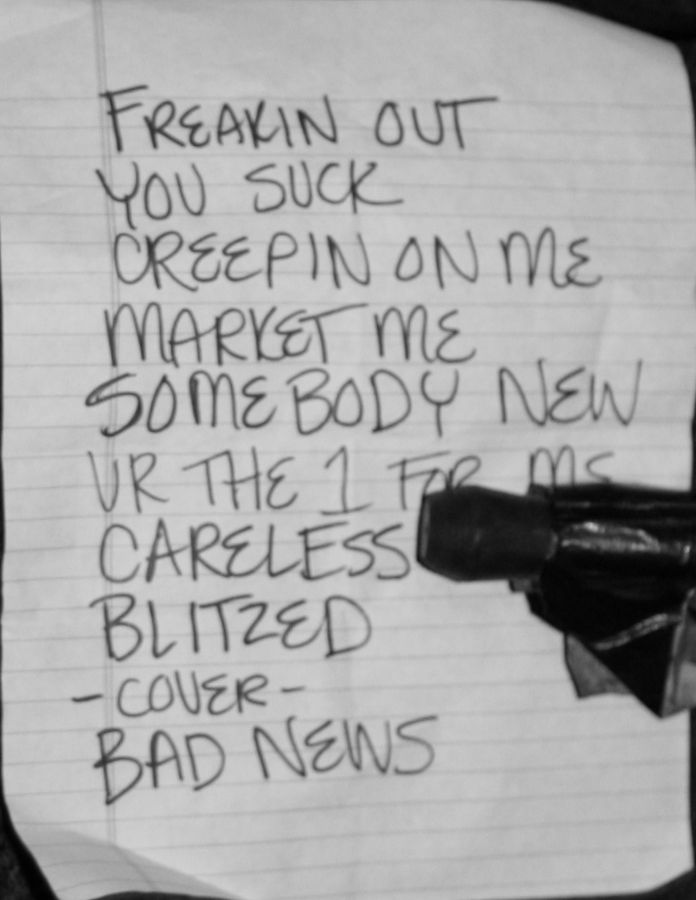 FREAKIN OUT
YOU SUCK
CREEPIN ON ME
MARKET ME
SOMEBODY NEW
UR THE 1 FOR ME
CARELESS
BLITZED
-COVER-
BAD NEWS